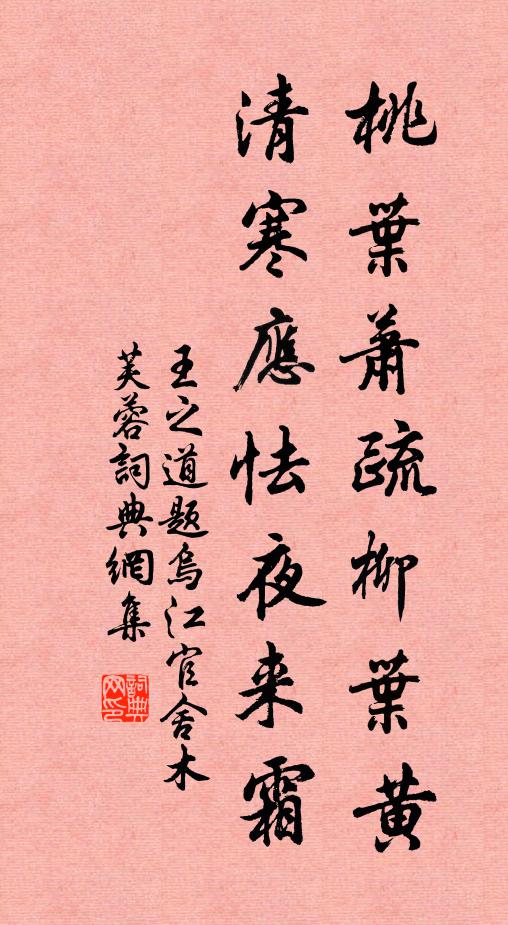 桃葉蕭疏柳葉黃
清寒應怯夜來霜
王之道題烏江官舍木
芙蓉詞典網集
詞典
网印